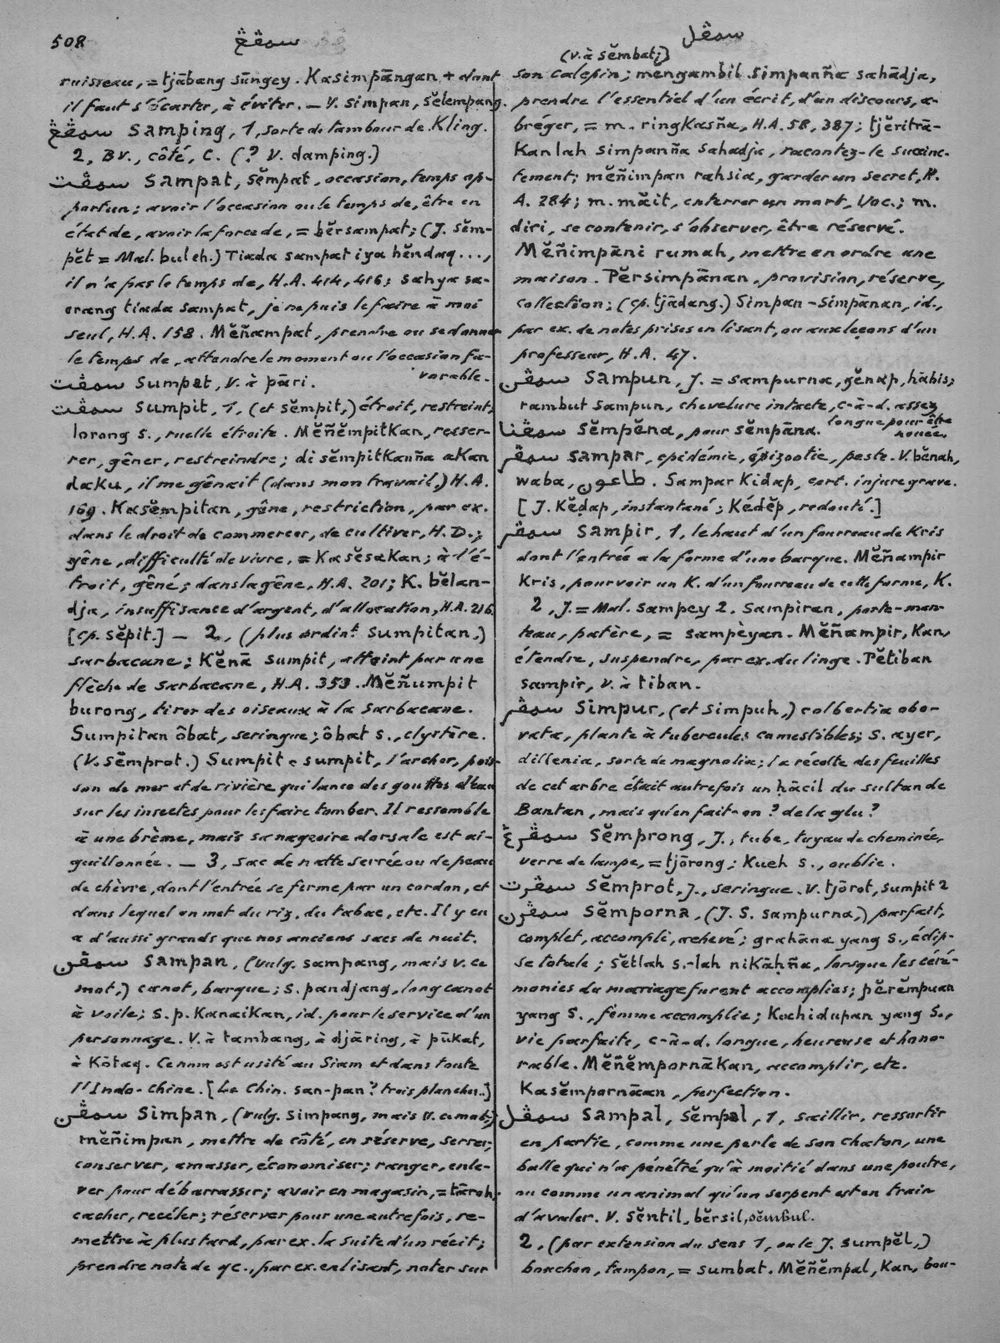 508 سمڤڠ سمڤل
ruisseau, = tjābang sūngey. Kasimpāngan + dont
il faut s'écarter, à éviter. — V. simpan, sĕlempang.
سمڤڠ samping, 1, sorte de tambour de Kling.
2, Bv., côté, C. (? V. damping.)
سمڤت sampat, sĕmpat, occasion, temps op-
portun; avoir l'occasion ou le temps de, être en
état de, avoir la force de, = bĕrsampat; (J. sĕm-
pĕt = Mal. buleh.) Tiada sampat iya hĕndaq ...,
il n'a pas le temps de, H.A. 414, 416; sahya sa-
orang tiada sampat, je ne puis le faire à moi
seul, H.A. 158. Mĕñampat, prendre ou se donner
le temps de, attendre le moment ou l'occasion fa-
vorable.
سمڤت sumpat, V. à pāri.
سمڤت sumpit, 1, (et sĕmpit,) étroit, restreint;
lorong s., ruelle étroite. Mĕñĕmpitkan, resser-
rer, gêner, restreindre; di sĕmpitkanña akan
daku, il me gênait (dans mon travail,) H.A.
169. Kasĕmpitan, gêne, restriction, par ex.
dans le droit de commercer, de cultiver, H.D.;
gêne, difficulté de vivre, = Kasĕsakan; à l'é-
troit, gêné; dans la gêne, H.A. 201; K. bĕlan-
dja, insuffisance d'argent, d'allocation, H.A. 216.
[cp. sĕpit.] — 2, (plus ordin.t sumpitan,)
sarbacane; Kĕnā sumpit, atteint par une
flèche de sarbacane, H.A. 353. Mĕñumpit
burong, tirer des oiseaux à la sarbacane.
Sumpitan ôbat, seringue; ôbat s., clystère.
(V. sĕmprot.) Sumpit-sumpit, l'archer, pois-
son de mer et de rivière qui lance des gouttes d'eau
sur les insectes pour les faire tomber. Il ressemble
à une brème, mais sa nageoire dorsale est ai-
guillonnée. — 3, sac de natte serrée ou de peau
de chèvre, dont l'entrée se ferme par un cordon, et
dans lequel on met du riz, du tabac, etc. Il y en
a d'aussi grands que nos anciens sacs de nuit.
سمڤن sampan, (vulg. sampang, mais v. ce
mot,) canot, barque; s. pandjang, long canot
à voile; s. p. Kanaikan, id. pour le service d'un
personnage. V. à tambang, à djāring, à pūkat,
à Kōtaq. Ce nom est usité au Siam et dans toute
l'Indo-Chine. [Le Chin. san-pan? trois planches.]
سمڤن simpan, (vulg. simpang, mais v. ce mot;)
mĕñimpan, mettre de côté, en réserve, serrer,
conserver, amasser, économiser; ranger, enle-
ver pour débarrasser; avoir en magasin, = tāroh;
cacher, recéler; réserver pour une autre fois, re-
mettre à plus tard, par ex. la suite d'un récit;
prendre note de qc., par ex. en lisant, noter sur
(v. à sĕmbat;)
son calepin; mengambil simpanña sahādja,
prendre l'essentiel d'un écrit, d'un discours, a-
bréger, = m. ringkasña, H.A. 58, 387; tjĕritrā-
kanlah simpanña sahadja, racontez-le succinc-
tement; mĕñimpan rahsia, garder un secret, H.
A. 284; m. māit, enterrer un mort, Voc.; m.
diri, se contenir, s'observer, être réservé.
Mĕñimpāni rumah, mettre en ordre une
maison. Pĕrsimpānan, provision, réserve,
collection; (cp. tjādang.) Simpan-simpānan, id.,
par ex. de notes prises en lisant, ou aux leçons d'un
professeur, H.A. 47.
سمڤن sampun, J. = sampurna, gĕnap, hābis;
rambut sampun, chevelure intacte, c-à-d. assez
longue pour être
nouée.
سمڤنا sĕmpĕna, pour sĕmpāna.
سمڤر sampar, epidémie, épizootie, peste. V. bĕnah,
waba, طاعون. Sampar Kidap, cert. injure grave.
[J. Kĕdap, instantané; Kédĕp, redouté.]
سمڤر sampir, 1, le haut d'un fourreau de Kris
dont l'entrée a la forme d'une barque. Mĕñampir
Kris, pourvoir un K. d'un fourreau de cette forme, K.
2, J. = Mal. sampey 2. Sampiran, porte-man-
teau, patère, = sampèyan. Mĕñampir, Kan,
étendre, suspendre, par ex. du linge. Pĕtiban
sampir, v. à tiban.
سمڤر simpur, (et simpuh,) colbertia obo-
vata, plante à tubercules comestibles; s. ayer,
dillenia, sorte de magnolia; la récolte des feuilles
de cet arbre était autrefois un ḥācil du sultan de
Bantan, mais qu'en fait-on? de la glu?
سمڤرڠ sĕmprong, J., tube, tuyau de cheminée,
verre de lampe, = tjōrong; Kueh s., oublie.
سمڤرت sĕmprot, J., seringue. V. tjōrot, sumpit 2
سمڤرن sĕmporna, (J. S. sampurna,) parfait,
complet, accompli, achevé; grahāna yang s., éclip-
se totale; sĕtlah s.-lah nikāḥña, lorsque les céré-
monies du mariage furent accomplies; pĕrĕmpuan
yang s., femme accomplie; Kahidupan yang s.,
vie parfaite, c-à-d. longue, heureuse et hono-
rable. Mĕñĕmpornākan, accomplir, etc.
Kasĕmpornāan, perfection.
سمڤل sampal, sĕmpal, 1, saillir, ressortir
en partie, comme une perle de son chaton, une
balle qui n'a pénétré qu'à moitié dans une poutre,
ou comme un animal qu'un serpent est en train
d'avaler. V. sĕntil, bĕrsil, sĕmbul.
2, (par extension du sens 1, ou le J. sumpĕl,)
bouchon, tampon, = sumbat. Mĕñĕmpal, Kan, bou-